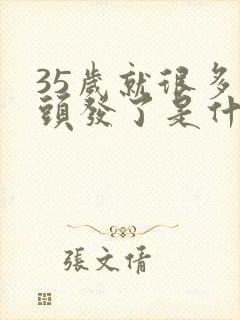 35歲就很多
頭發了是什
張文倩